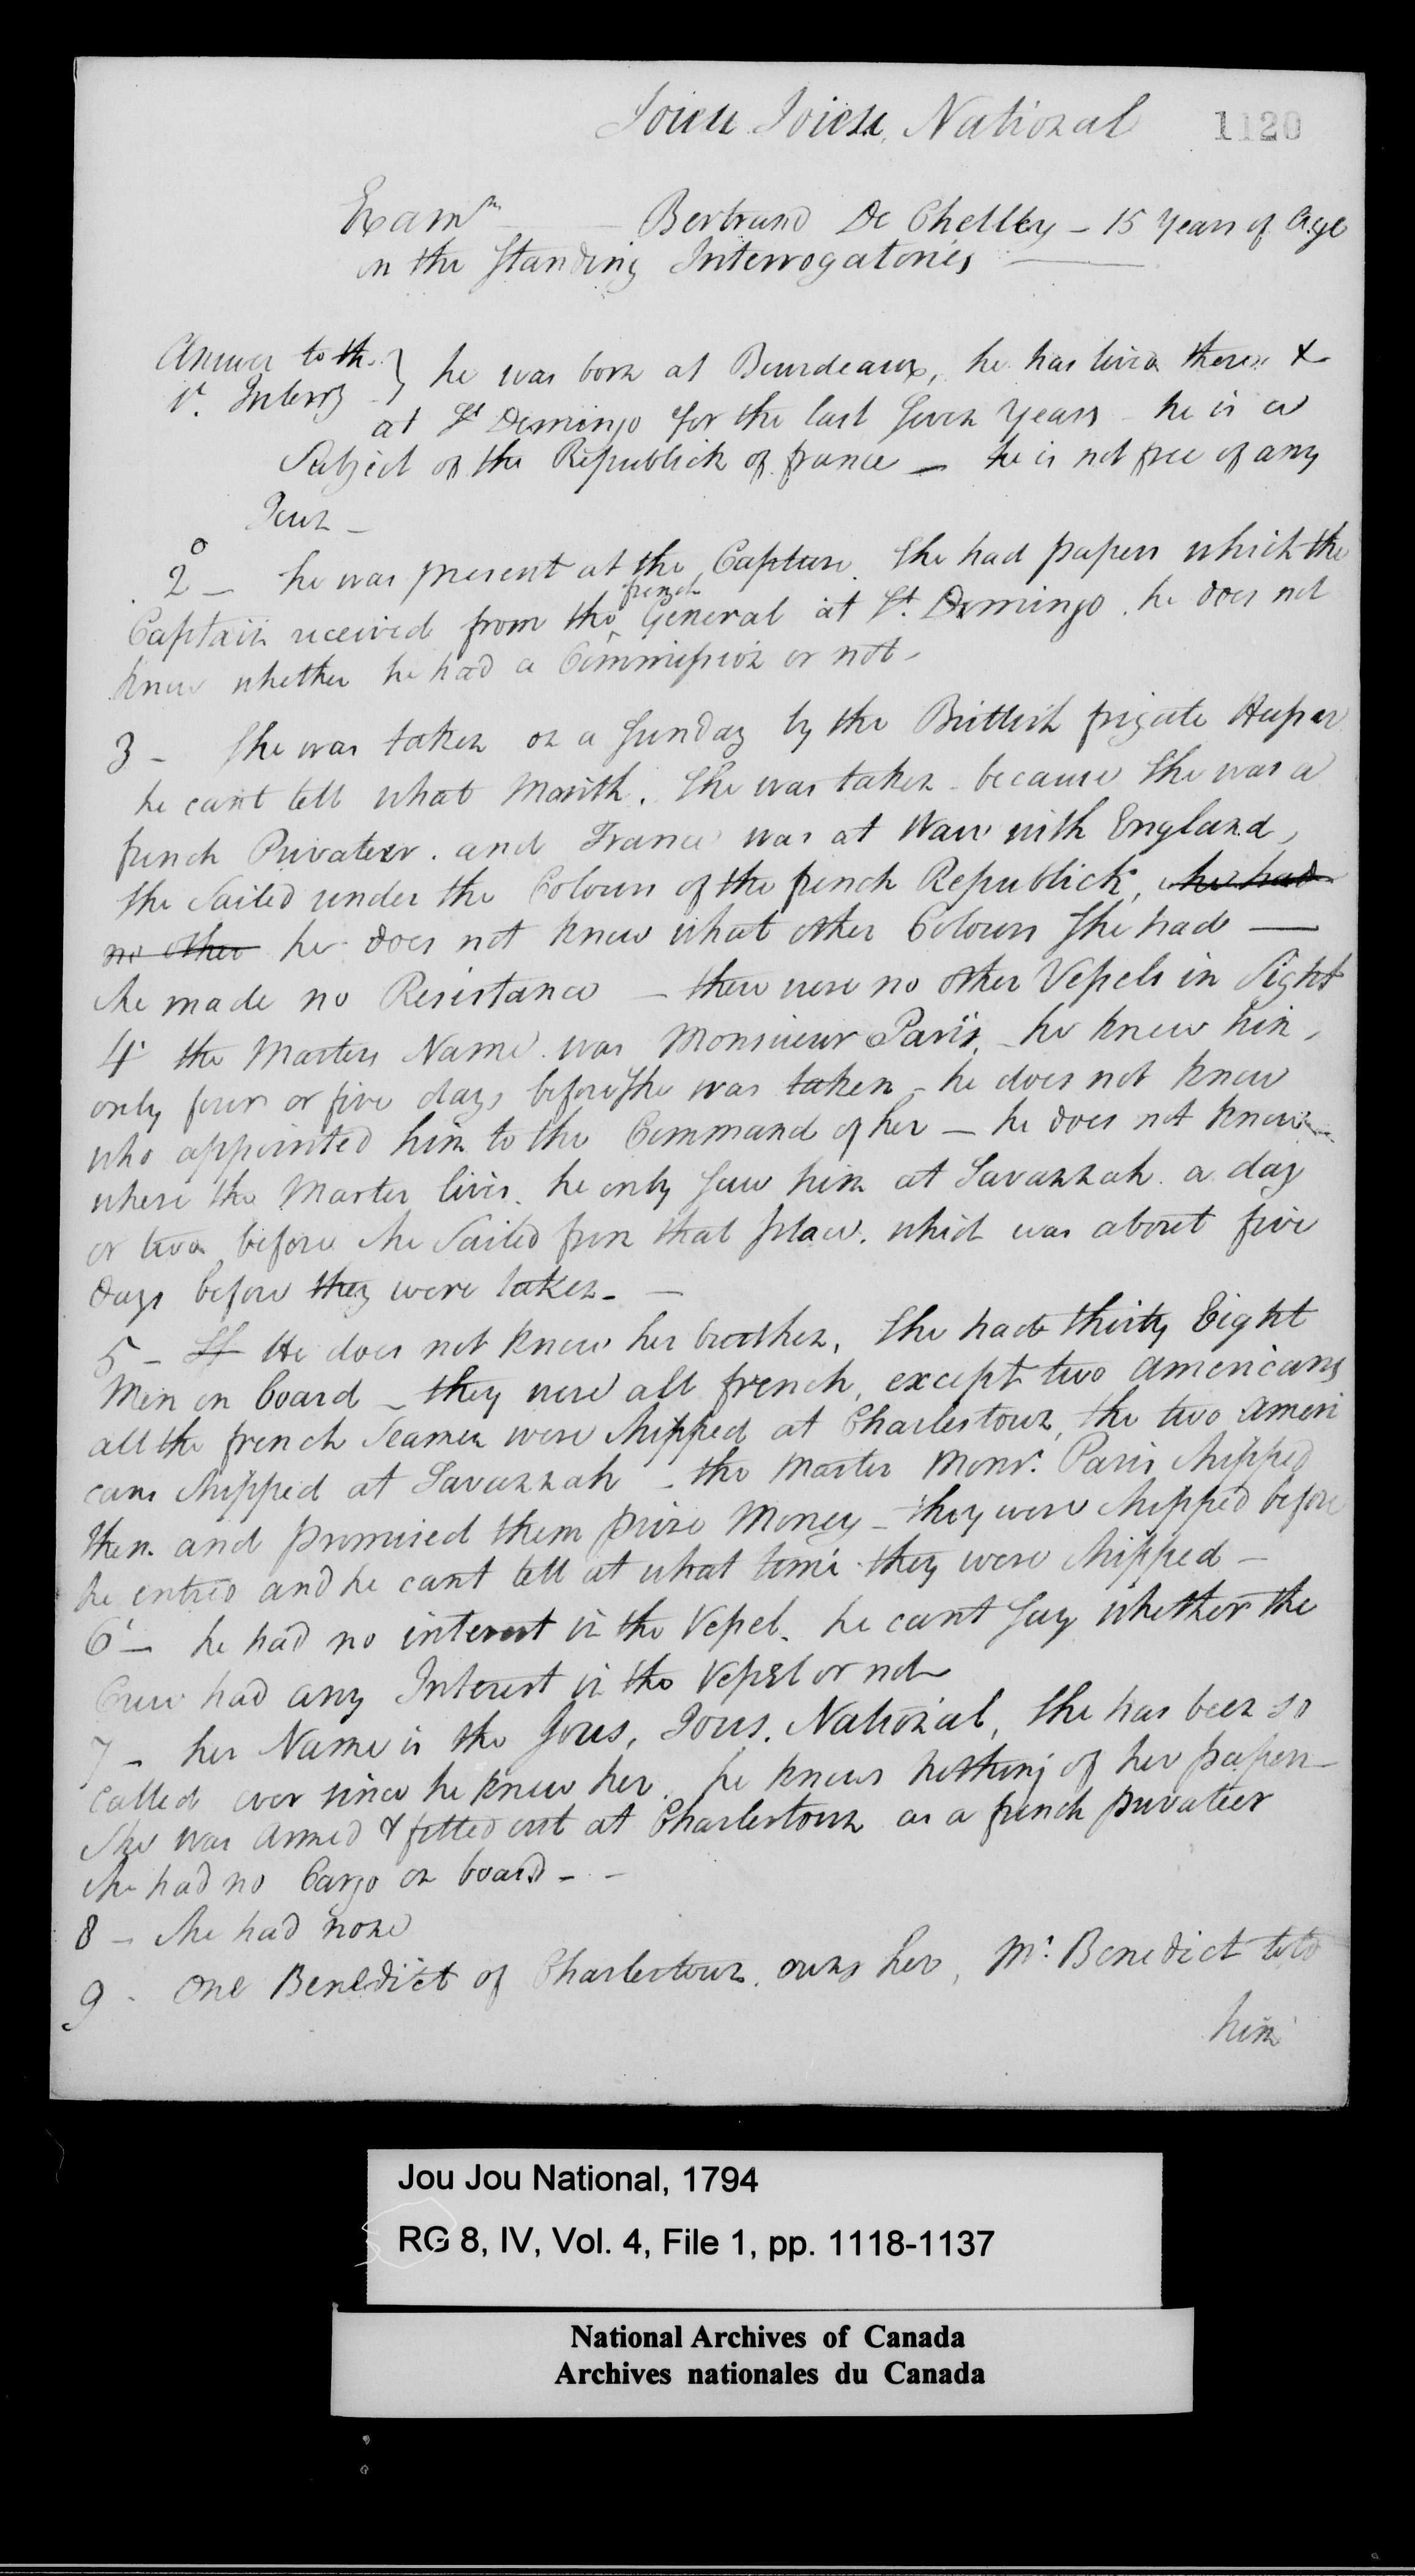 Joieu Joieu, National 1120
Exam^n Bertrand De Chelley - 15 Years of Age
on the Standing Interrogatories
Answer to the
1st. Interry } he was born at Bourdeaux, he has lived there &
at St Domingo for the last seven Years - he is a
Subject of the Republick of france - he is not free of any
Town -
2 - he was present at the Capture. She had papers which the
Captain received from the french General at St. Domingo. he does not
know whether he had a Commission or not -
3 - She was taken on a Sunday by the Brittish frigate Hussar
he cant tell what Month. She was taken because She was a
french Privateer. and France was at War with England,
She Sailed under the Colours of the french Republick, she had
no other he does not know what other Colours She had -
she made no Resistance - there were no other Vessels in Sight
4 the Masters Name was Monsieur Paris, - he knew him,
only four or five days before She was taken - he does not know
who appointed him to the Command of her - he does not know
where the Master lives. he only saw him at Savannah a day
or two before she Sailed from that place. which was about five
days before they were taken -
5 - Sh He does not know her burthen, She had thirty Eight
Men on board - they were all french, except two americans
all the french Seamen were shipped at Charlestown, the two Ameri
cans shipped at Savannah - the Master Monr. Paris shipped
them and promised them prize Money - they were shipped before
he entred and he cant tell at what time they were shipped -
6 - he had no interest in the Vessel. he cant say whether the
Crew had any Interest in the Vessel or not
7 - her Name is the Jous, Jous. National, She has been so
called ever since he knew her. he knows nothing of her papers
She was armed & fitted out at Charlestown as a french privateer
she had no Cargo on board -
8 - she had none
9 - One Benedict of Charlestown owns her, Mr. Benedict told
him
Jou Jou National, 1794
RG 8, IV, Vol. 4, File 1, pp. 1118-1137
National Archives of Canada
Archives nationales du Canada